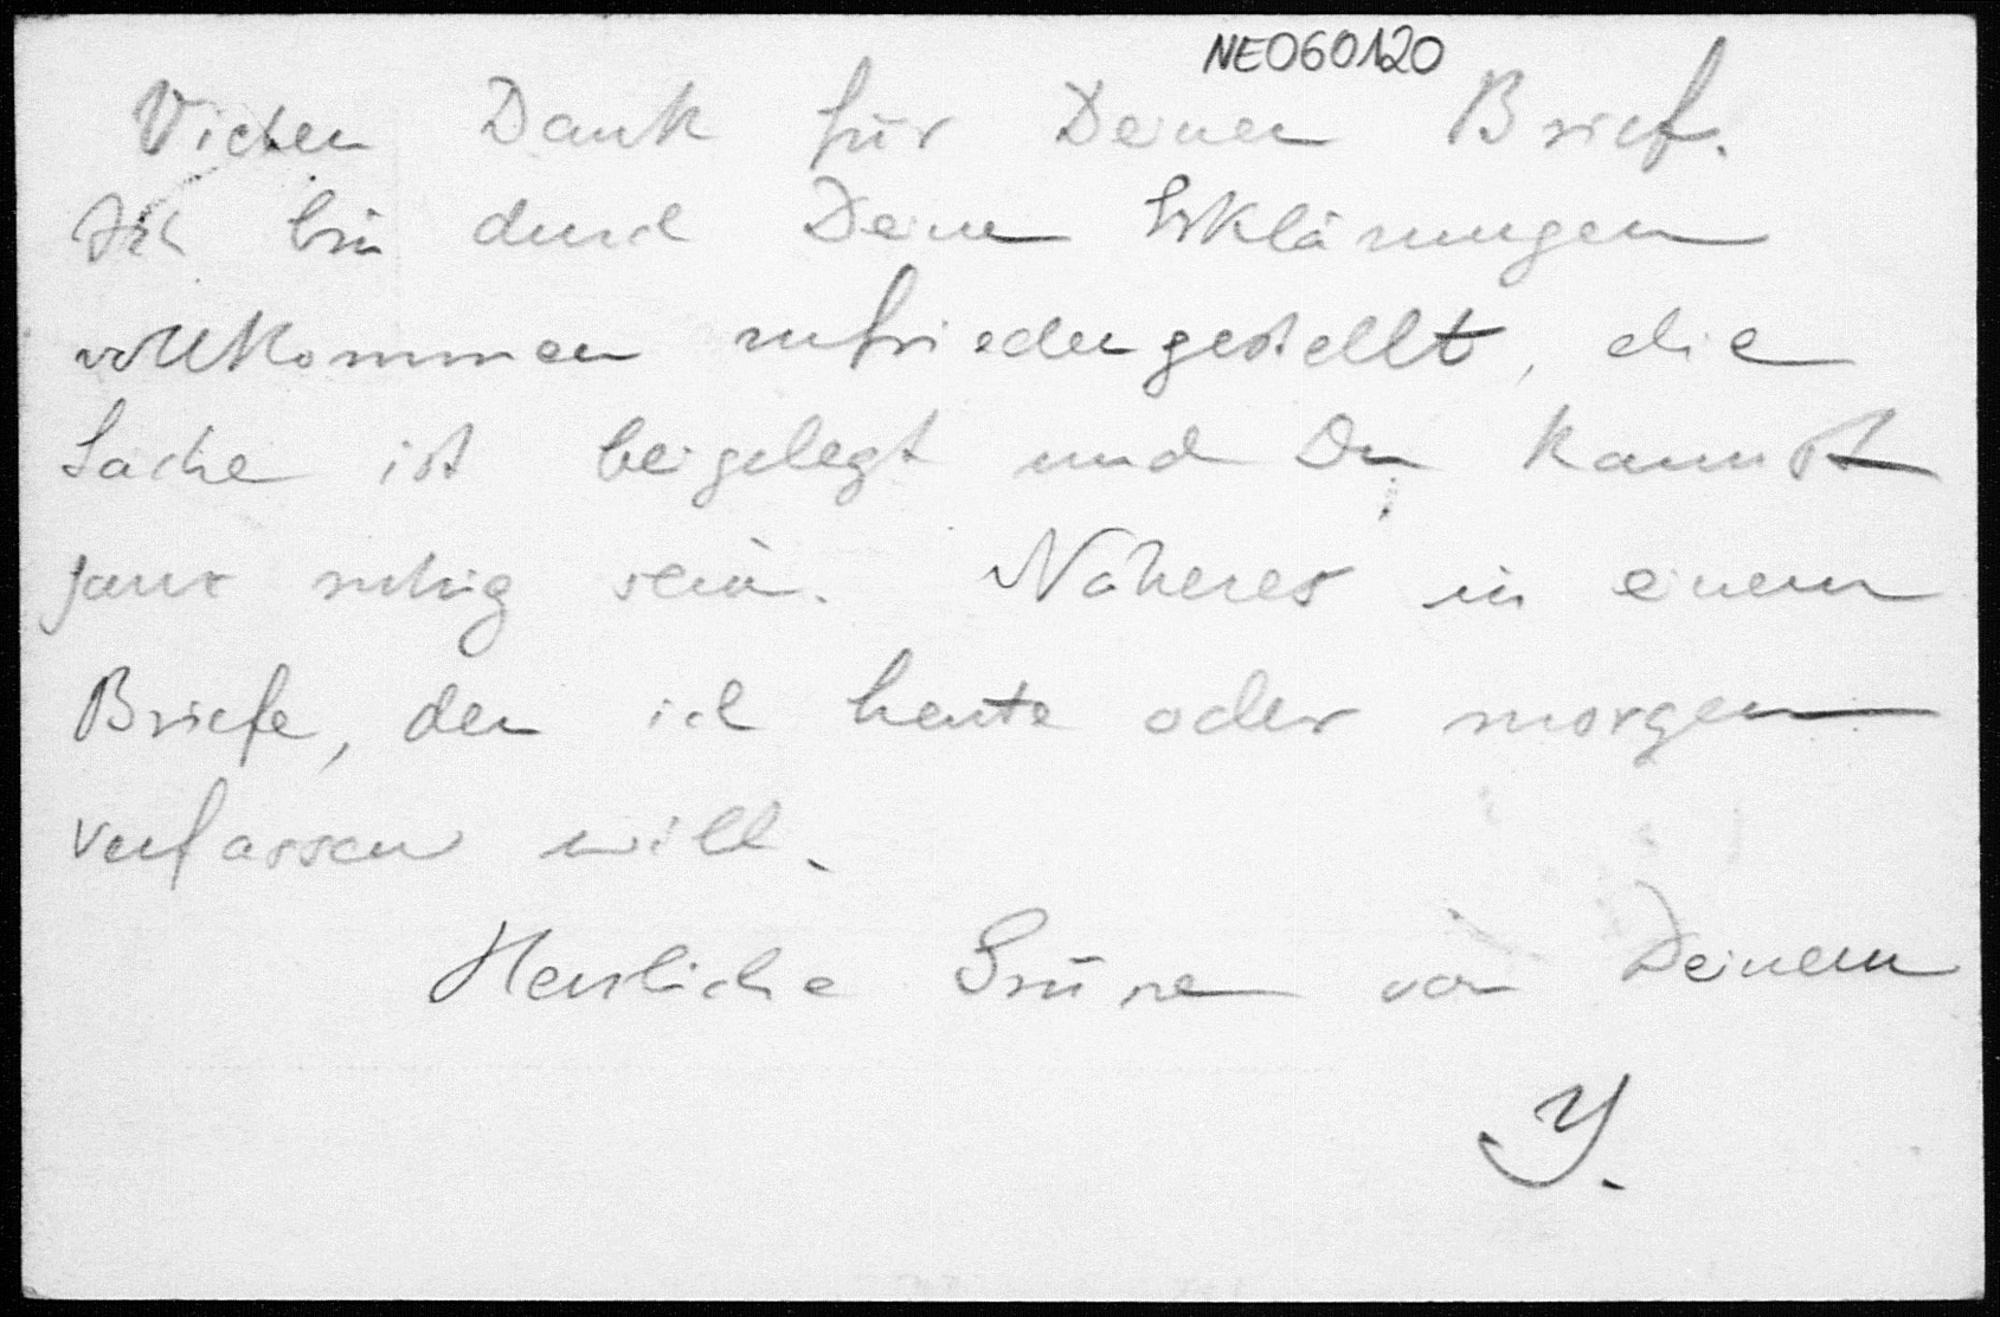 NE060120
Vielen Dank für Deinen Brief.
Ich bin durch Deine Erklärungen
vollkommen zufriedengestellt, die
Sache ist beigelegt und Du kannst
ganz ruhig sein. Näheres in einem
Briefe, den ich heute oder morgen
verfassen will.
Herzliche Grüße von Deinem
Y.